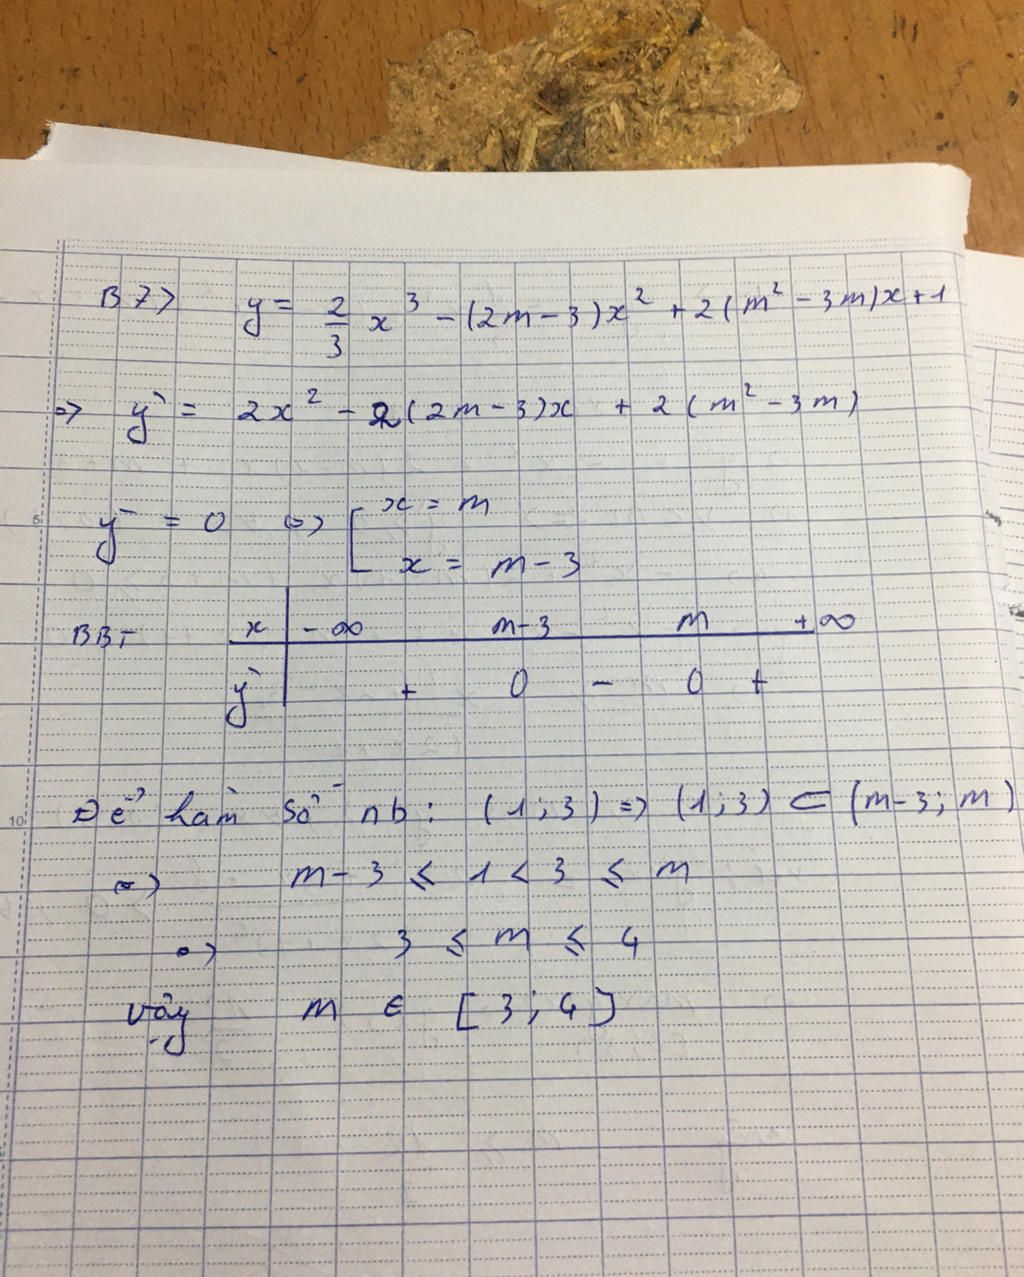 B7) y = 2/3 x³ - (2m-3)x² + 2(m² - 3m)x+1
=> y' = 2x² - 2(2m-3)x + 2(m² - 3m)
y' = 0 <=> [ x = m
x = m-3
BBT x | -∞ m-3 m +∞
y' | + 0 - 0 +
Để hàm số nb: (1;3) => (1;3) ⊂ (m-3; m)
<=> m-3 ≤ 1 < 3 ≤ m
<=> 3 ≤ m ≤ 4
Vậy m ∈ [3;4]
5
10